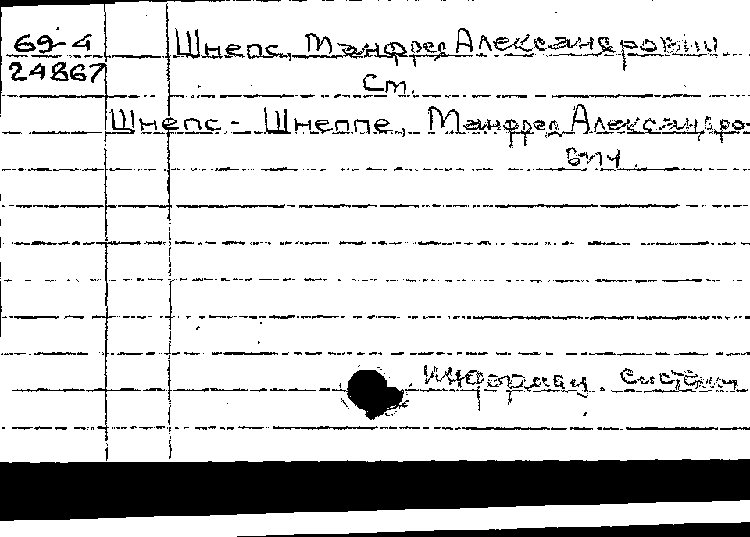 69-4 Шнепс, Манфред Александрович
24867 См.
Шнепс - Шнеппе, Манфред Александро-
вич.
Информац. системы